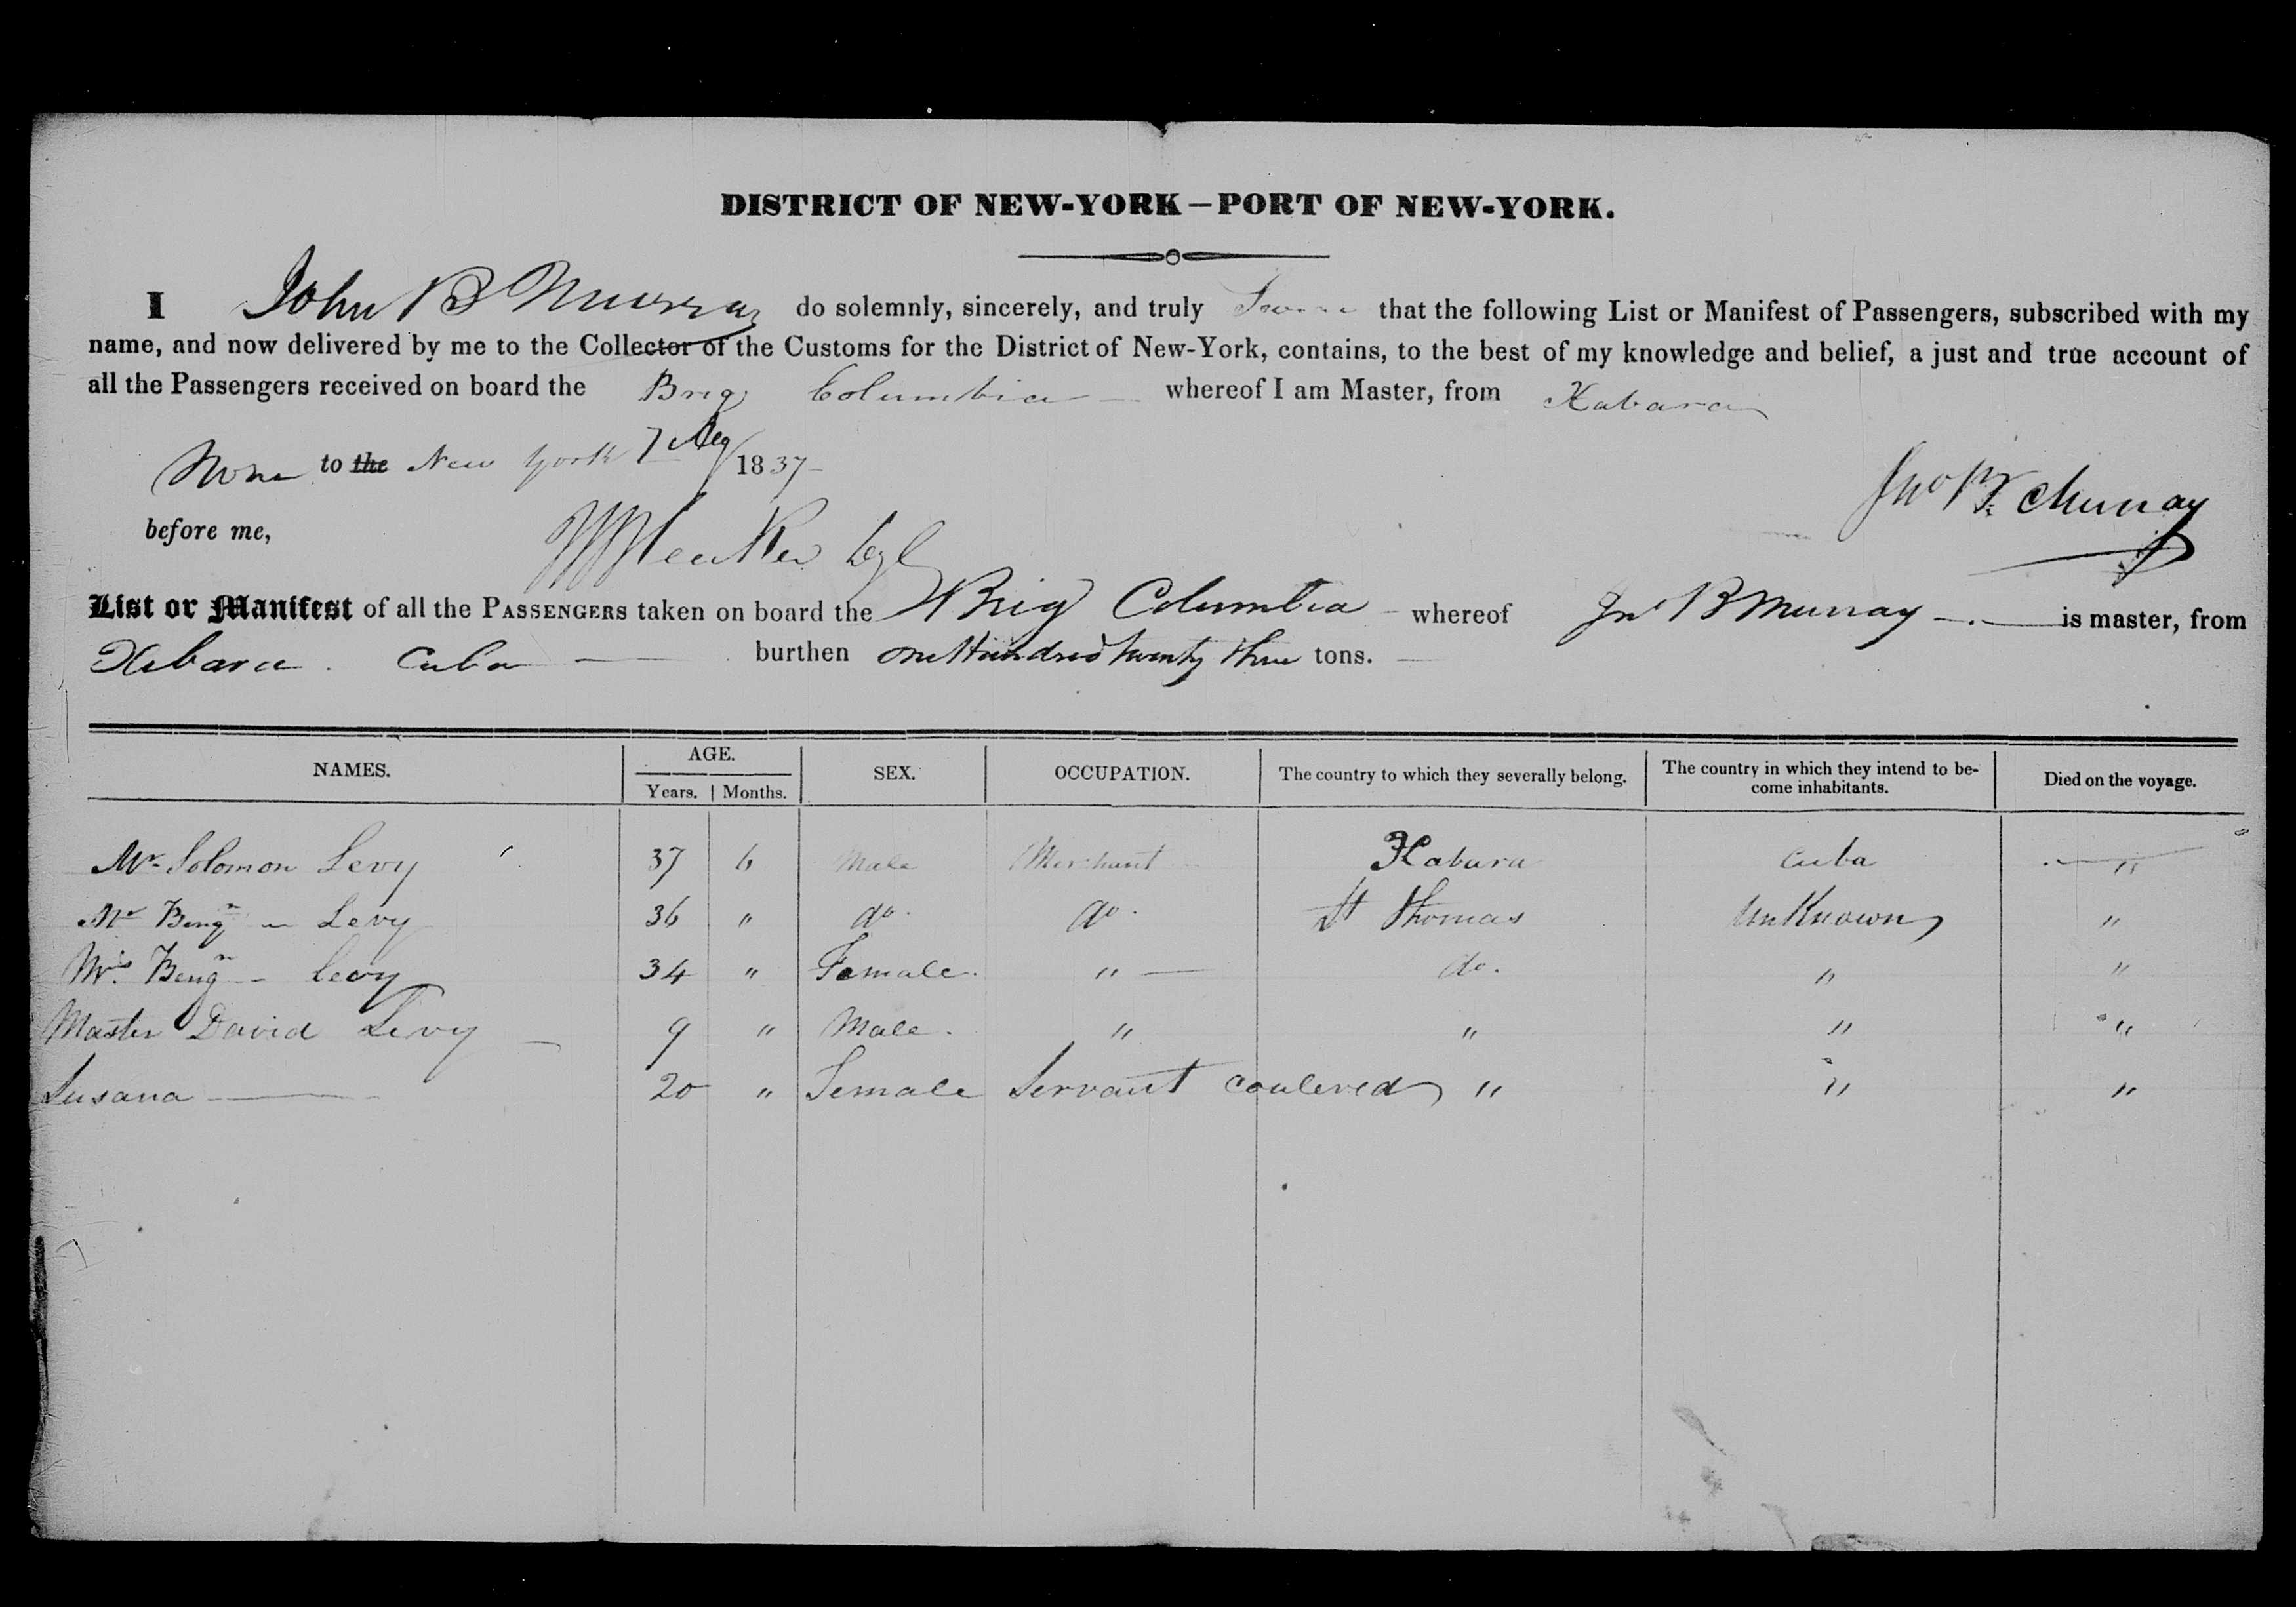 DISTRICT OF NEW-YORK—PORT OF NEW-YORK.
I John B Murray do solemnly, sincerely, and truly that the following List or Manifest of Passengers, subscribed with my
name, and now delivered by me to the Collector of the Customs for the District of New-York, contains, to the best of my knowledge and belief, a just and true account of
all the Passengers received on board the Brig Columbia whereof I am Master, from Xabara
to the New York 7 Aug 1837
Jno B. Murray
before me,
List or Manifest of all the PASSENGERS taken on board the Brig Columbia whereof Jno B Murray is master, from
Xebara. Cuba burthen one Hundred twenty three tons.
NAMES. AGE. SEX. OCCUPATION. The country to which they severally belong. The country in which they intend to be- Died on the voyage.
Years. Months. come inhabitants.
Mr. Solomon Levy 37 6 Male Merchant Xabara Cuba "
Mr Benjn Levy 36 " do. do. St Thomas UnKnown "
Mrs. Benjn Levy 34 " Female. " do. " "
Master David Levy 9 " Male. " " " "
Susana 20 " Female Servant coulered " " "